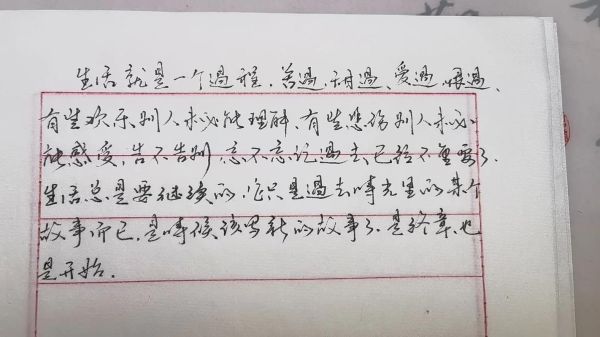 生活就是一个過程，苦過、甜過、爱過、恨過，
有些欢乐别人未必能理解，有些悲伤别人未必
能感受，告不告别，忘不忘记過去，已经不重要了，
生活总是要继续的，你只是過去時光里的某个
故事而已，是時候该写新的故事了。是终章，也
是开始。